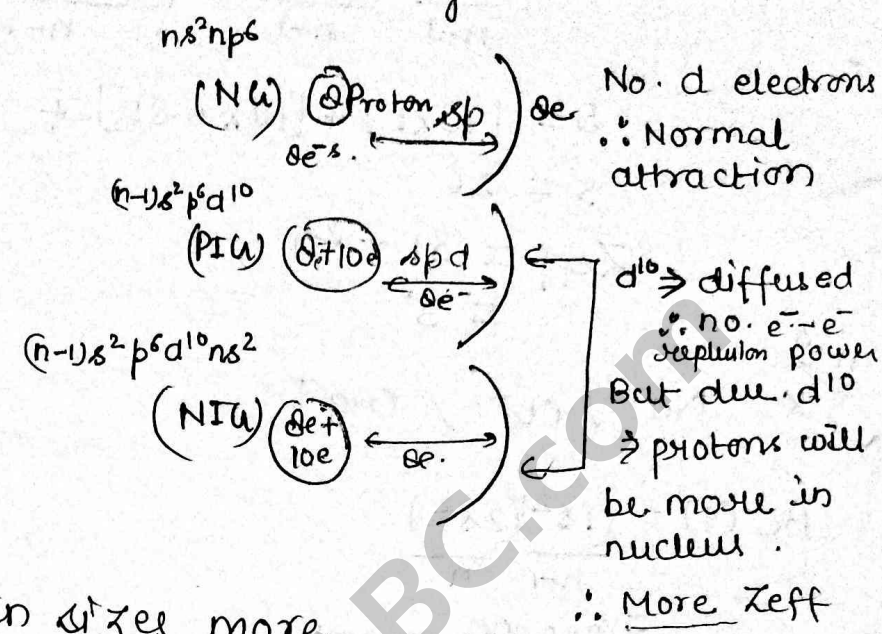 ns²np6
(NG) 8Proton sp 8e
8e⁻s.
No. d electrons
∴ Normal
attraction
(n-1)s²p⁶d¹⁰
(PIG) 8+10e spd
8e⁻
d¹⁰ ⇒ diffused
∴ no. e⁻-e⁻
repluion power
But due. d¹⁰
⇒ protons will
be more in
nucleus.
∴ More Zeff
(n-1)s²p⁶d¹⁰ns²
(NIG) 8e+
10e
8e.
sizes more
BC.com